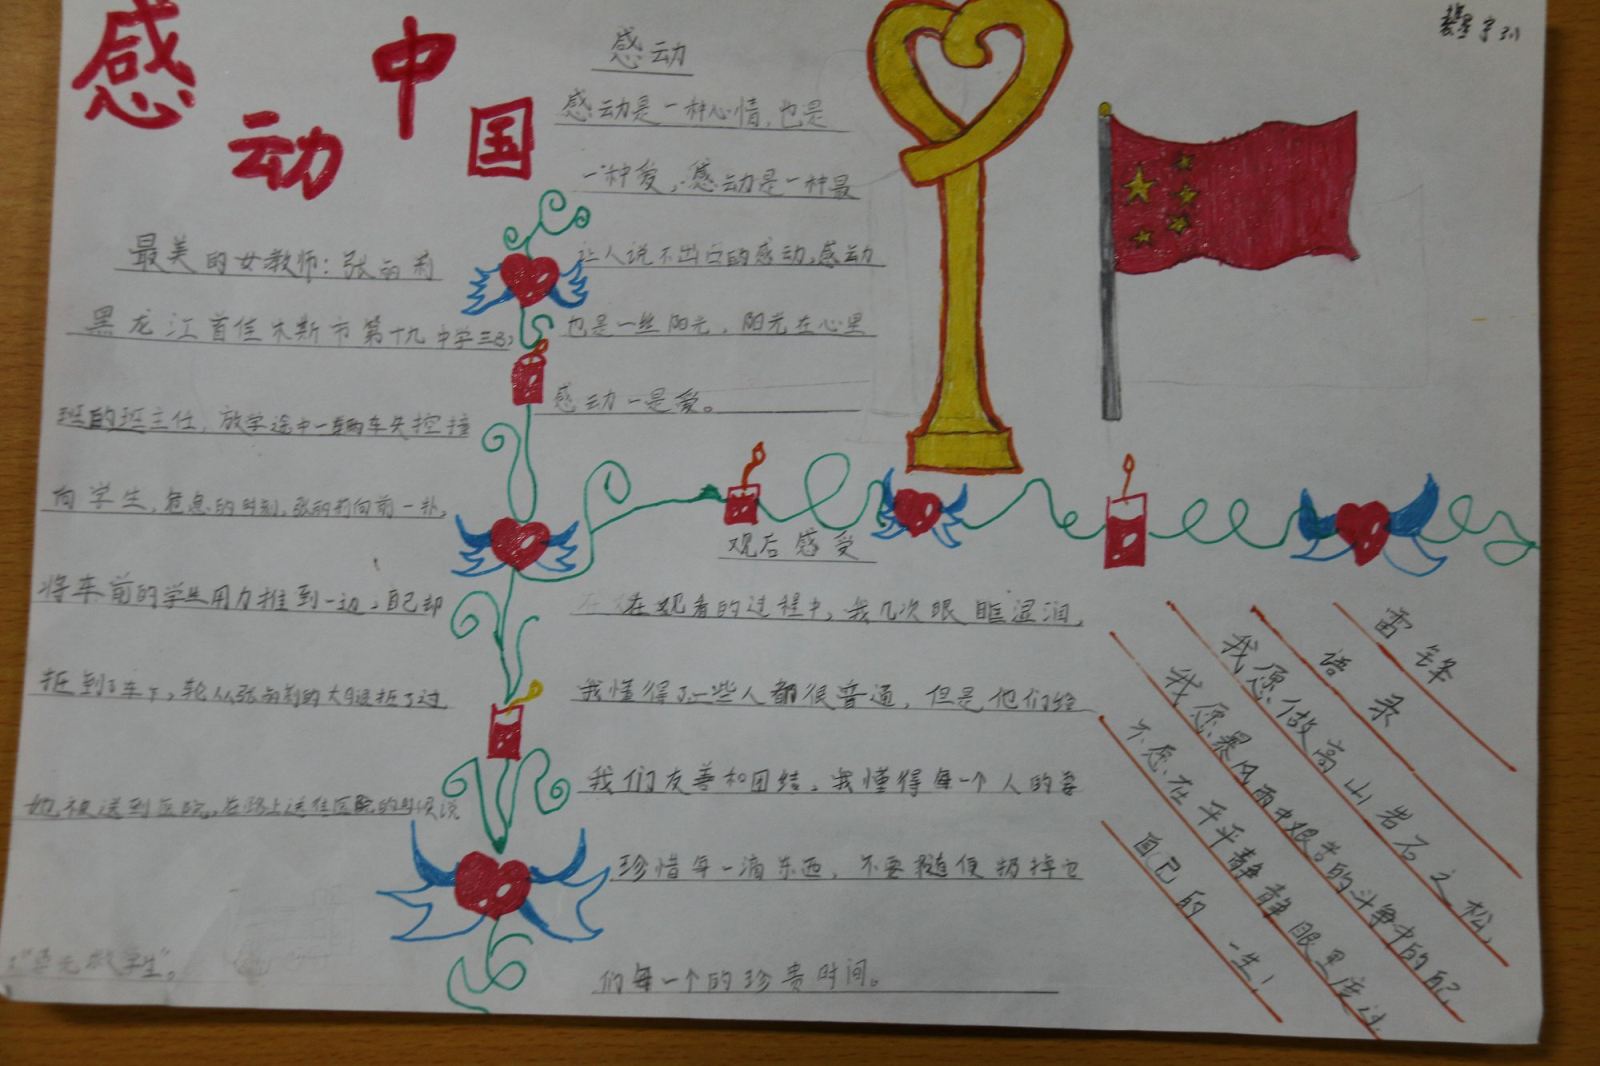 感动中国
最美的女教师:张丽莉
黑龙江省佳木斯市第十九中学三(3)
班的班主任,放学途中一辆车失控撞
向学生,危急的时刻,张丽莉向前一扑,
将车前的学生用力推到一边,自己却
扺到了车下,轮从张丽莉的大腿扺了过
她被送到医院,在路上送往医院的时候说
:"先救学生"。
感动
感动是一种心情,也是
一种爱,感动是一种最
让人说不出口的感动,感动
也是一丝阳光,阳光在心里
感动一是爱。
观后感受
在观看的过程中,我几次眼眶湿润,
我懂得了一些人都很普通,但是他们给
我们友善和团结。我懂得每一个人的
珍惜每一滴东西,不要随便扔掉它
们每一个的珍贵时间。
雷锋
语录
我愿做高山岩石之松,
我愿暴风雨中艰苦的斗争中的配
不愿在平平静静眼里度过
自己的一生!